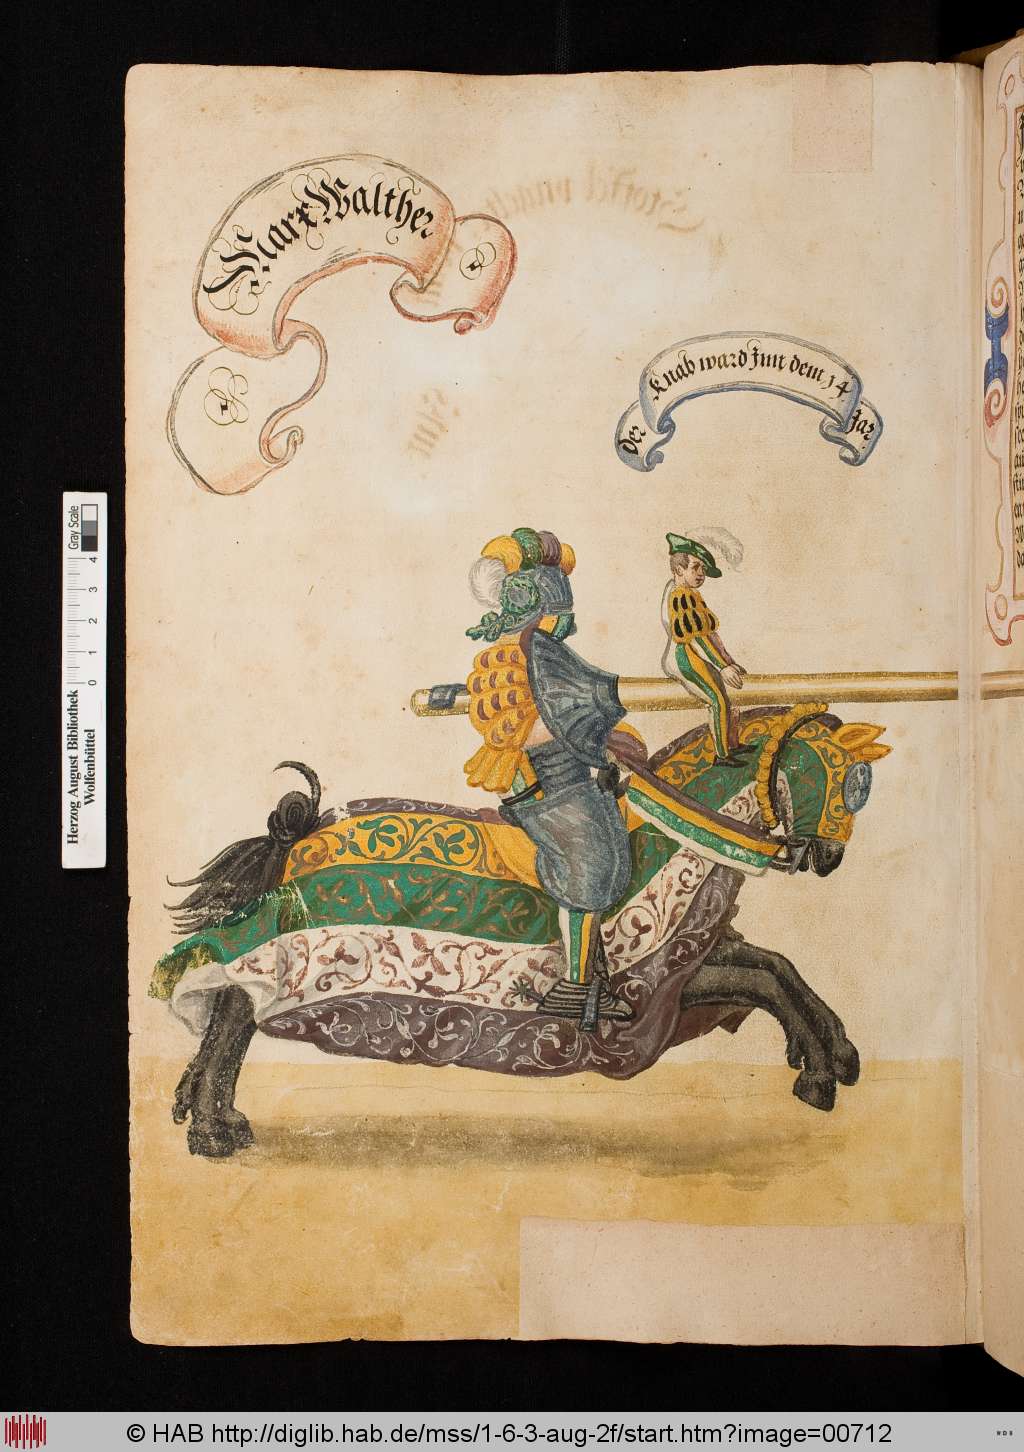 Marx Walther
der Knab ward Jnn dem 14 Jar
Herzog August Bibliothek
Wolfenbüttel
0 1 2 3 4
Gray Scale
© HAB http://diglib.hab.de/mss/1-6-3-aug-2f/start.htm?image=00712